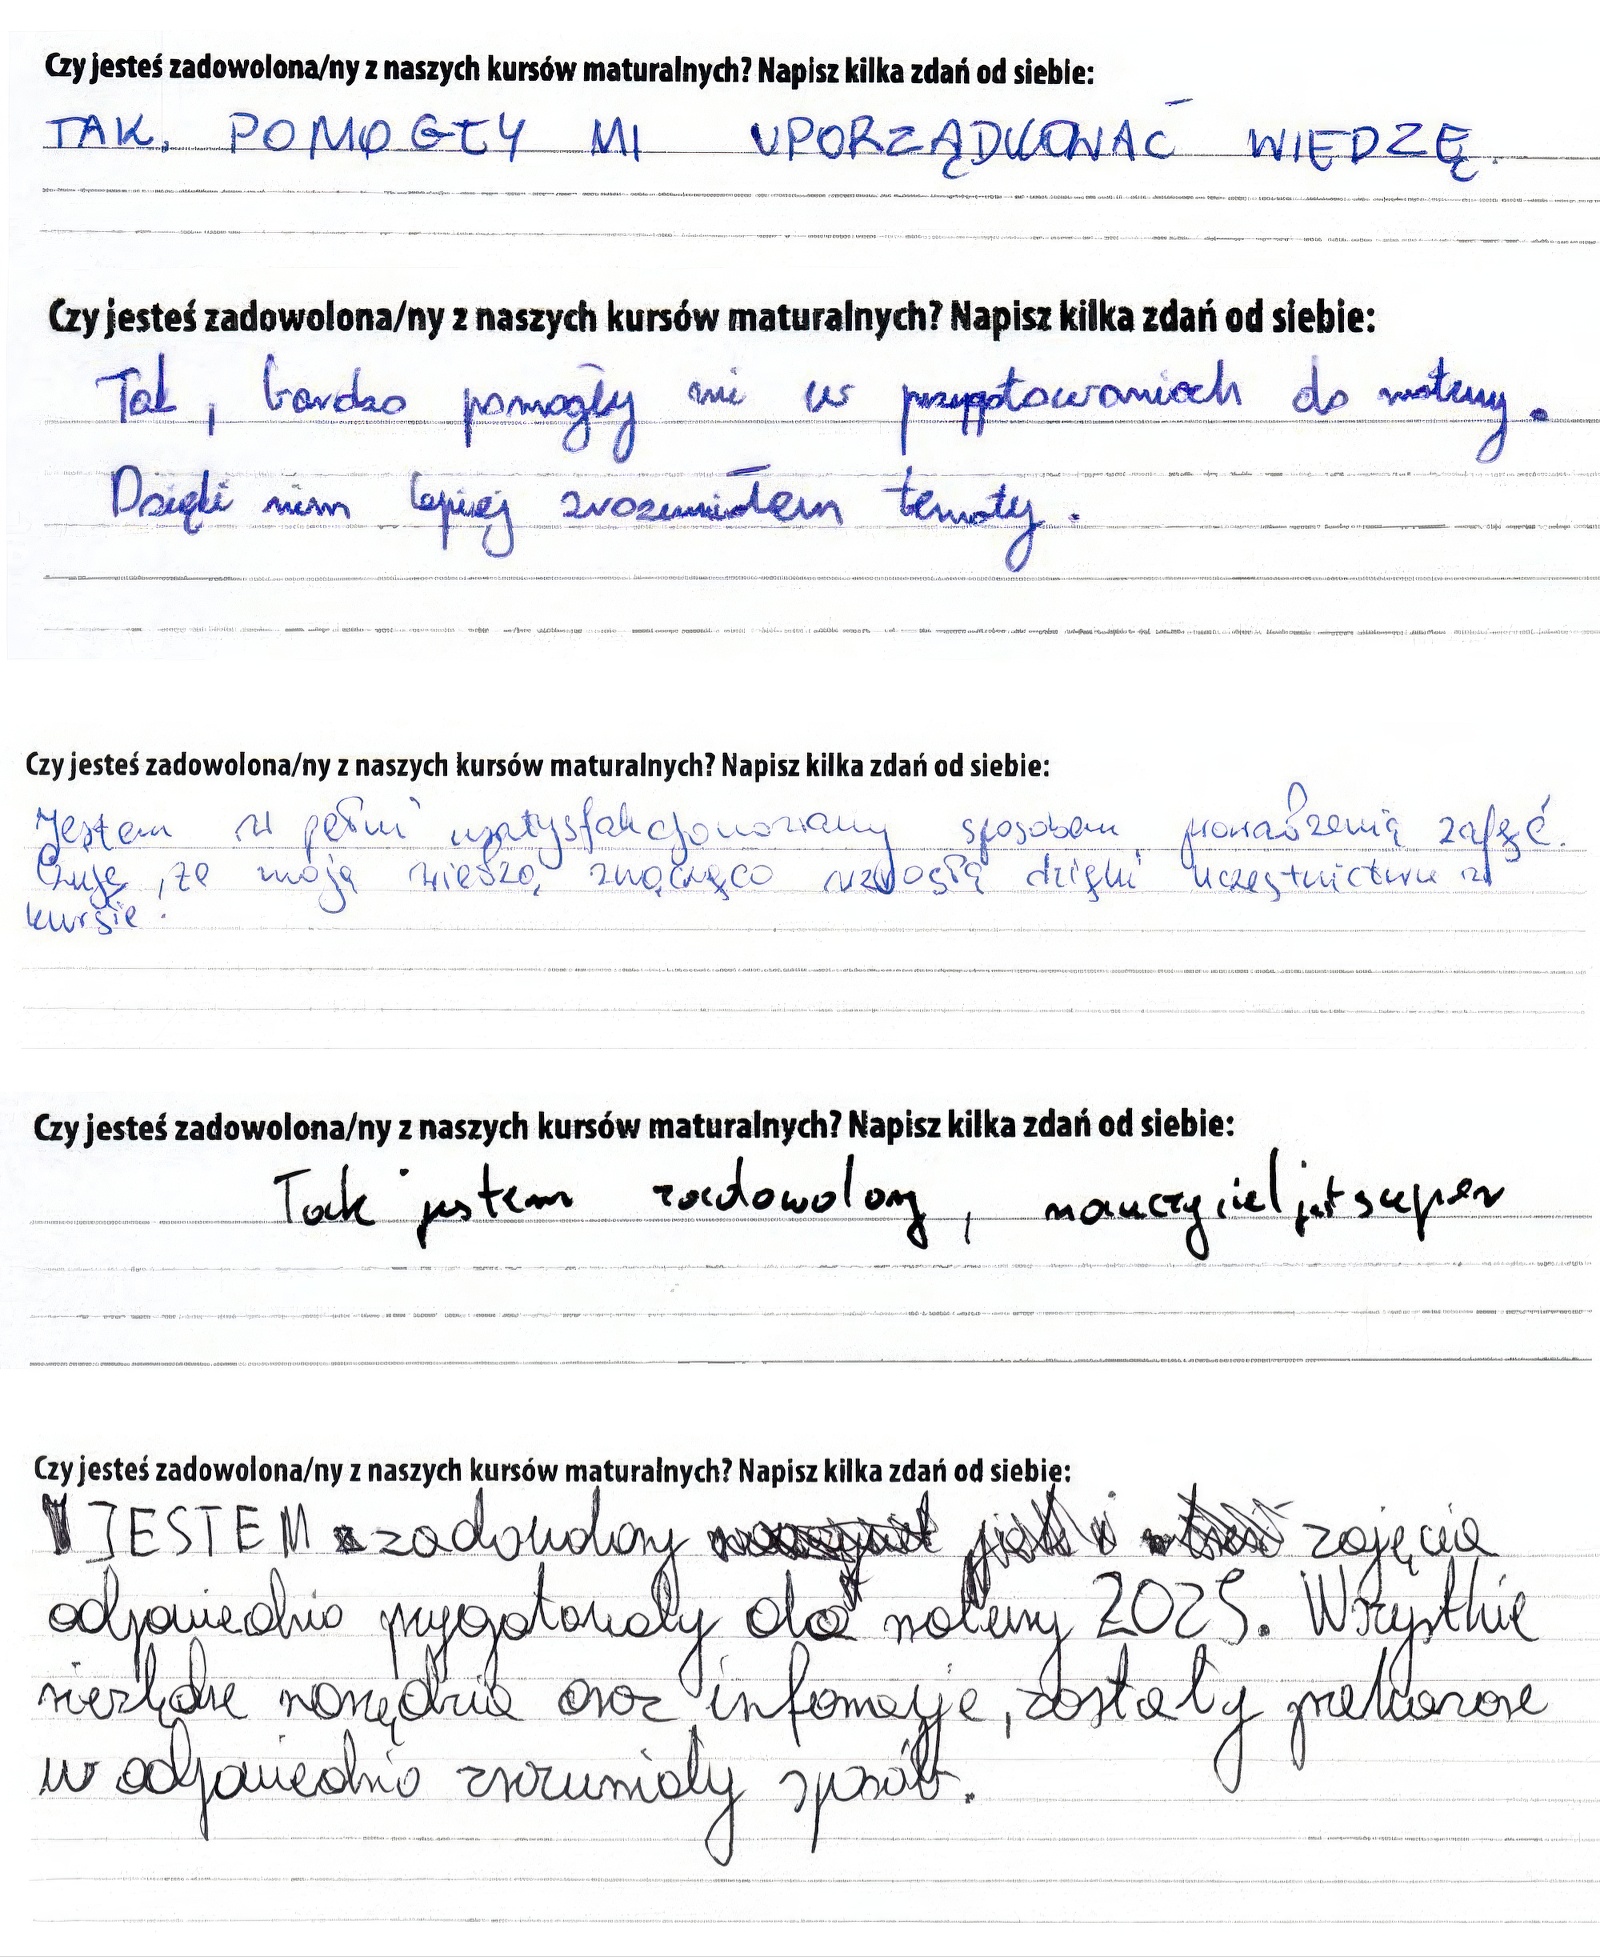 Czy jesteś zadowolona/ny z naszych kursów maturalnych? Napisz kilka zdań od siebie:
TAK, POMOGŁY MI UPORZĄDKOWAĆ WIEDZĘ.
Czy jesteś zadowolona/ny z naszych kursów maturalnych? Napisz kilka zdań od siebie:
Tak, bardzo pomogły mi w przygotowaniach do matury.
Dzięki nim lepiej zrozumiałem tematy.
Czy jesteś zadowolona/ny z naszych kursów maturalnych? Napisz kilka zdań od siebie:
Jestem w pełni usatysfakcjonowany sposobem prowadzenia zajęć.
Czuję, że moja wiedza znacząco wzrosła dzięki uczestnictwu w
kursie.
Czy jesteś zadowolona/ny z naszych kursów maturalnych? Napisz kilka zdań od siebie:
Tak jestem zadowolony, nauczyciel jest super
Czy jesteś zadowolona/ny z naszych kursów maturalnych? Napisz kilka zdań od siebie:
JESTEM zadowolony zajęcia
odpowiednio przygotowały do matury 2025. Wszystkie
niezbędne narzędzia oraz informacje, zostały przekazane
w odpowiednio zrozumiały sposób.